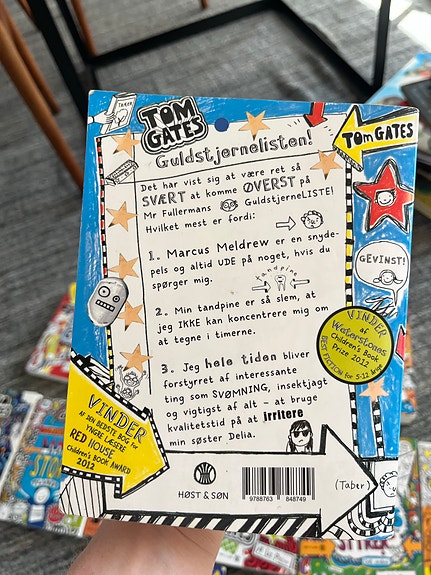 TABER
TOM
GATES
TOM GATES
Guldstjernelisten!
Det har vist sig at være ret så
SVÆRT at komme ØVERST på
Mr Fullermans GuldstjerneLISTE!
Hvilket mest er fordi:
1. Marcus Meldrew er en snyde-
pels og altid UDE på noget, hvis du
spørger mig.
Tandpine
2. Min tandpine er så slem, at
jeg IKKE kan koncentrere mig om
at tegne i timerne.
3. Jeg hele tiden bliver
forstyrret af interessante
ting som SVØMNING, insektjagt
og vigtigst af alt – at bruge
kvalitetstid på at irritere
min søster Delia.
GEVINST!
VINDER
af
Waterstones
Children's Book
Prize 2012
BEST FICTION for 5-12 årige
VINDER
AF DEN BEDSTE BOG for
YNGRE LÆSERE
RED HOUSE
Children's BOOK AWARD
2012
HØST & SØN
9788763 848749
(Taber)